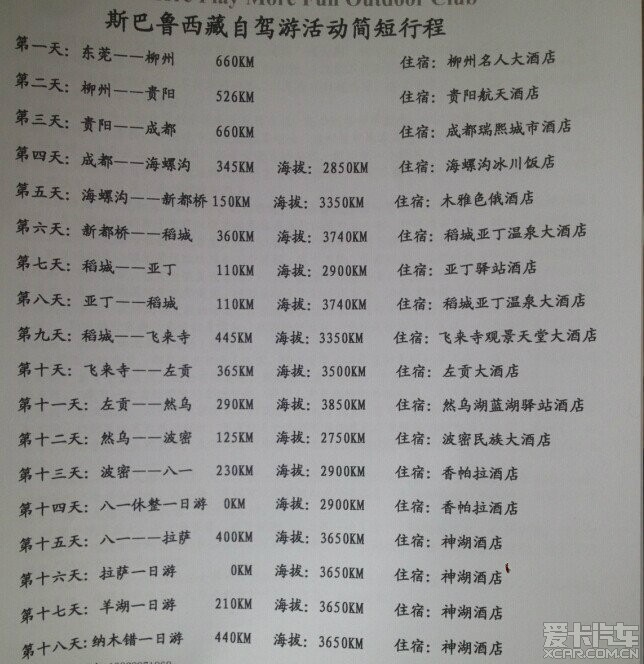 Play More Fun Outdoor Club
斯巴鲁西藏自驾游活动简短行程
第一天：东莞——柳州 660KM 住宿：柳州名人大酒店
第二天：柳州——贵阳 526KM 住宿：贵阳航天酒店
第三天：贵阳——成都 660KM 住宿：成都瑞熙城市酒店
第四天：成都——海螺沟 345KM 海拔：2850KM 住宿：海螺沟冰川饭店
第五天：海螺沟——新都桥 150KM 海拔：3350KM 住宿：木雅色俄酒店
第六天：新都桥——稻城 360KM 海拔：3740KM 住宿：稻城亚丁温泉大酒店
第七天：稻城——亚丁 110KM 海拔：2900KM 住宿：亚丁驿站酒店
第八天：亚丁——稻城 110KM 海拔：3740KM 住宿：稻城亚丁温泉大酒店
第九天：稻城——飞来寺 445KM 海拔：3350KM 住宿：飞来寺观景天堂大酒店
第十天：飞来寺——左贡 365KM 海拔：3500KM 住宿：左贡大酒店
第十一天：左贡——然乌 290KM 海拔：3850KM 住宿：然乌湖蓝湖驿站酒店
第十二天：然乌——波密 125KM 海拔：2750KM 住宿：波密民族大酒店
第十三天：波密——八一 230KM 海拔：2900KM 住宿：香帕拉酒店
第十四天：八一休整一日游 0KM 海拔：2900KM 住宿：香帕拉酒店
第十五天：八一——拉萨 400KM 海拔：3650KM 住宿：神湖酒店
第十六天：拉萨一日游 0KM 海拔：3650KM 住宿：神湖酒店
第十七天：羊湖一日游 210KM 海拔：3650KM 住宿：神湖酒店
第十八天：纳木错一日游 440KM 海拔：3650KM 住宿：神湖酒店
爱卡汽车
XCAR.COM.CN